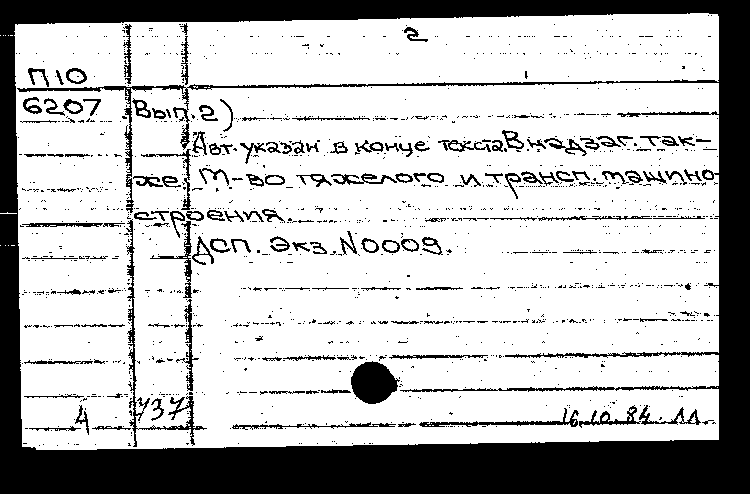 2
П10
6207 Вып.2)
Авт. указан в конце текста. В надзаг. так-
же: М-во тяжелого и трансп. машино-
строения.
ДСП. Экз. N0009.
4 737 16.10.84.